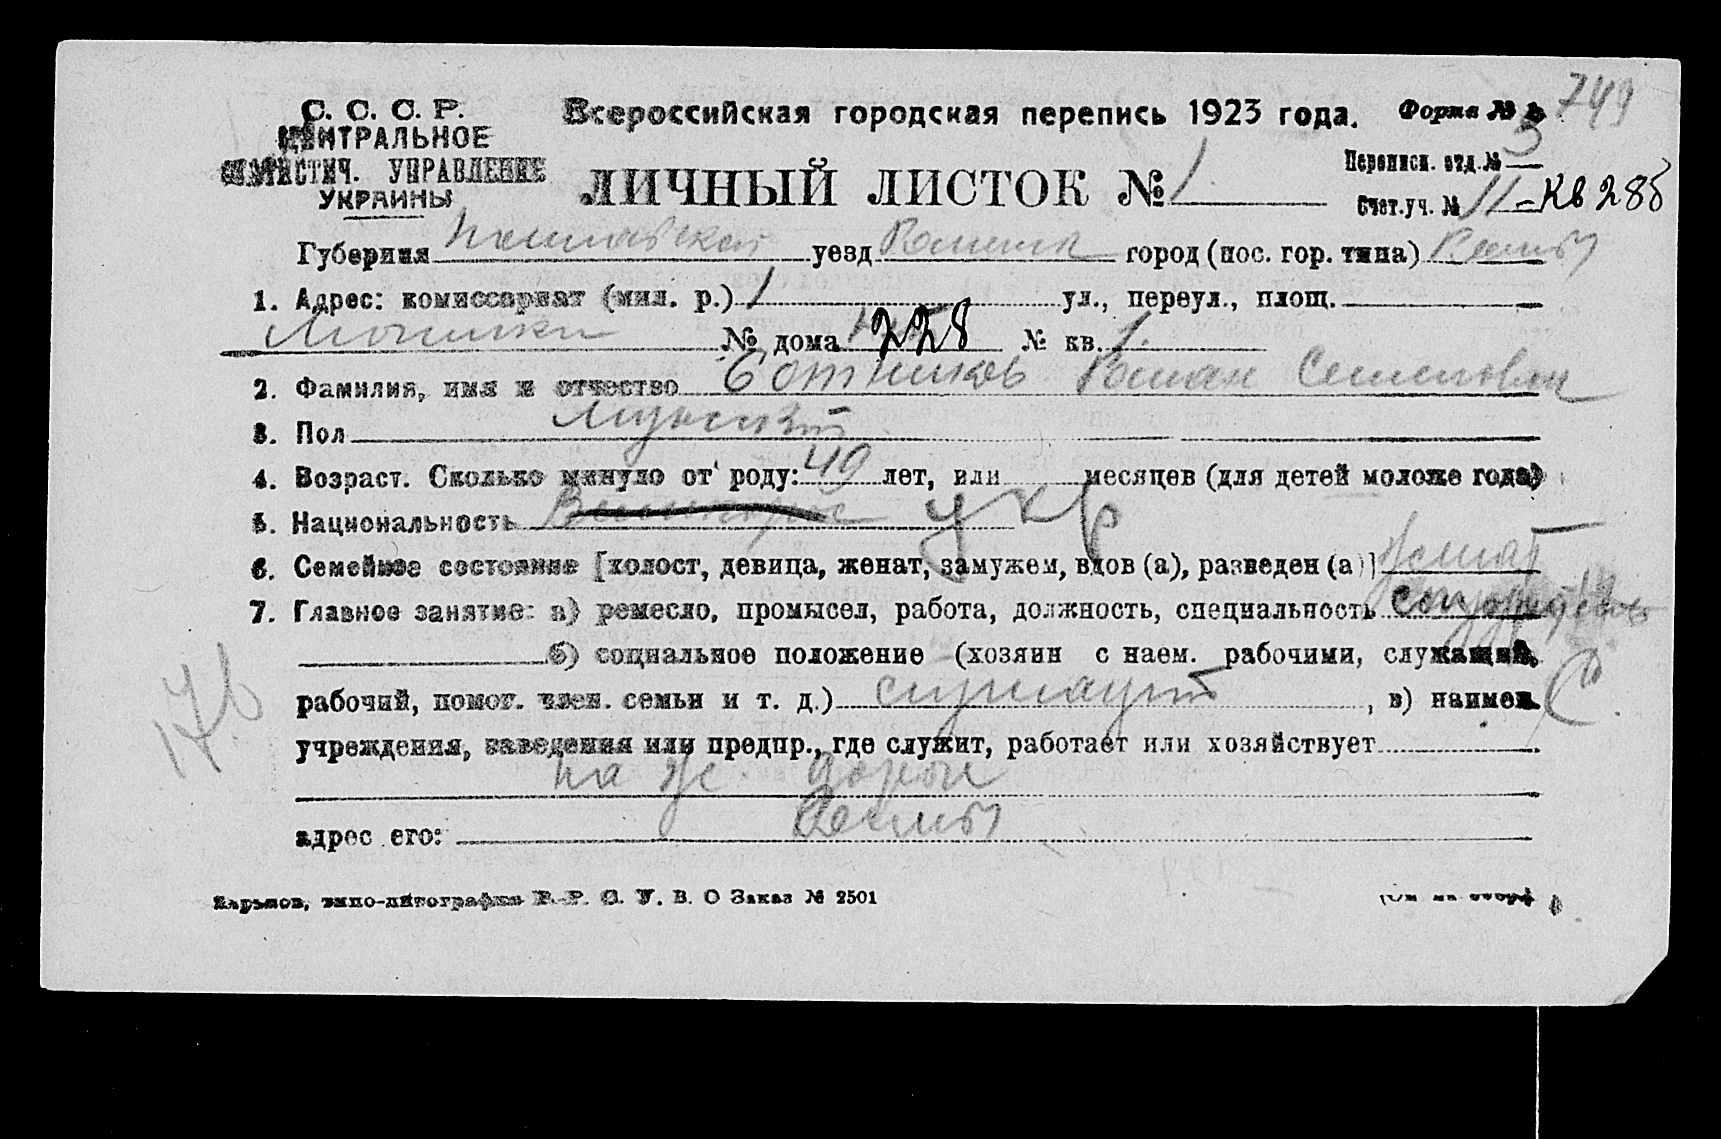 С. С. С. Р.
ЦЕНТРАЛЬНОЕ
СТАТИСТИЧ. УПРАВЛЕНИЕ
УКРАИНЫ
Всероссийская городская перепись 1923 года.
Форма №
749
ЛИЧНЫЙ ЛИСТОК № 1
Переписн. отд. № 3
Счет. уч. № 11 - Кв 286
Губерния Полтавская уезд город (пос. гор. типа)
1. Адрес: комиссариат (мил. р.) 1 ул., переул., площ.
№ дома 228 № кв. 1.
2. Фамилия, имя и отчество Сотников Роман Семенович
3. Пол Мужской
4. Возраст. Сколько минуло от роду: 49 лет, или месяцев (для детей моложе года)
5. Национальность укр
6. Семейное состояние [холост, девица, женат, замужем, вдов (а), разведен (а)] женат
7. Главное занятие: а) ремесло, промысел, работа, должность, специальность
б) социальное положение (хозяин с наем. рабочими, служащий,
рабочий, помог. член. семьи и т. д.) служащий, в) наимен.
учреждения, заведения или предпр., где служит, работает или хозяйствует
на ж. дороге
адрес его:
176
Харьков, типо-литография Р. Р. С. У. В. О Заказ № 2501